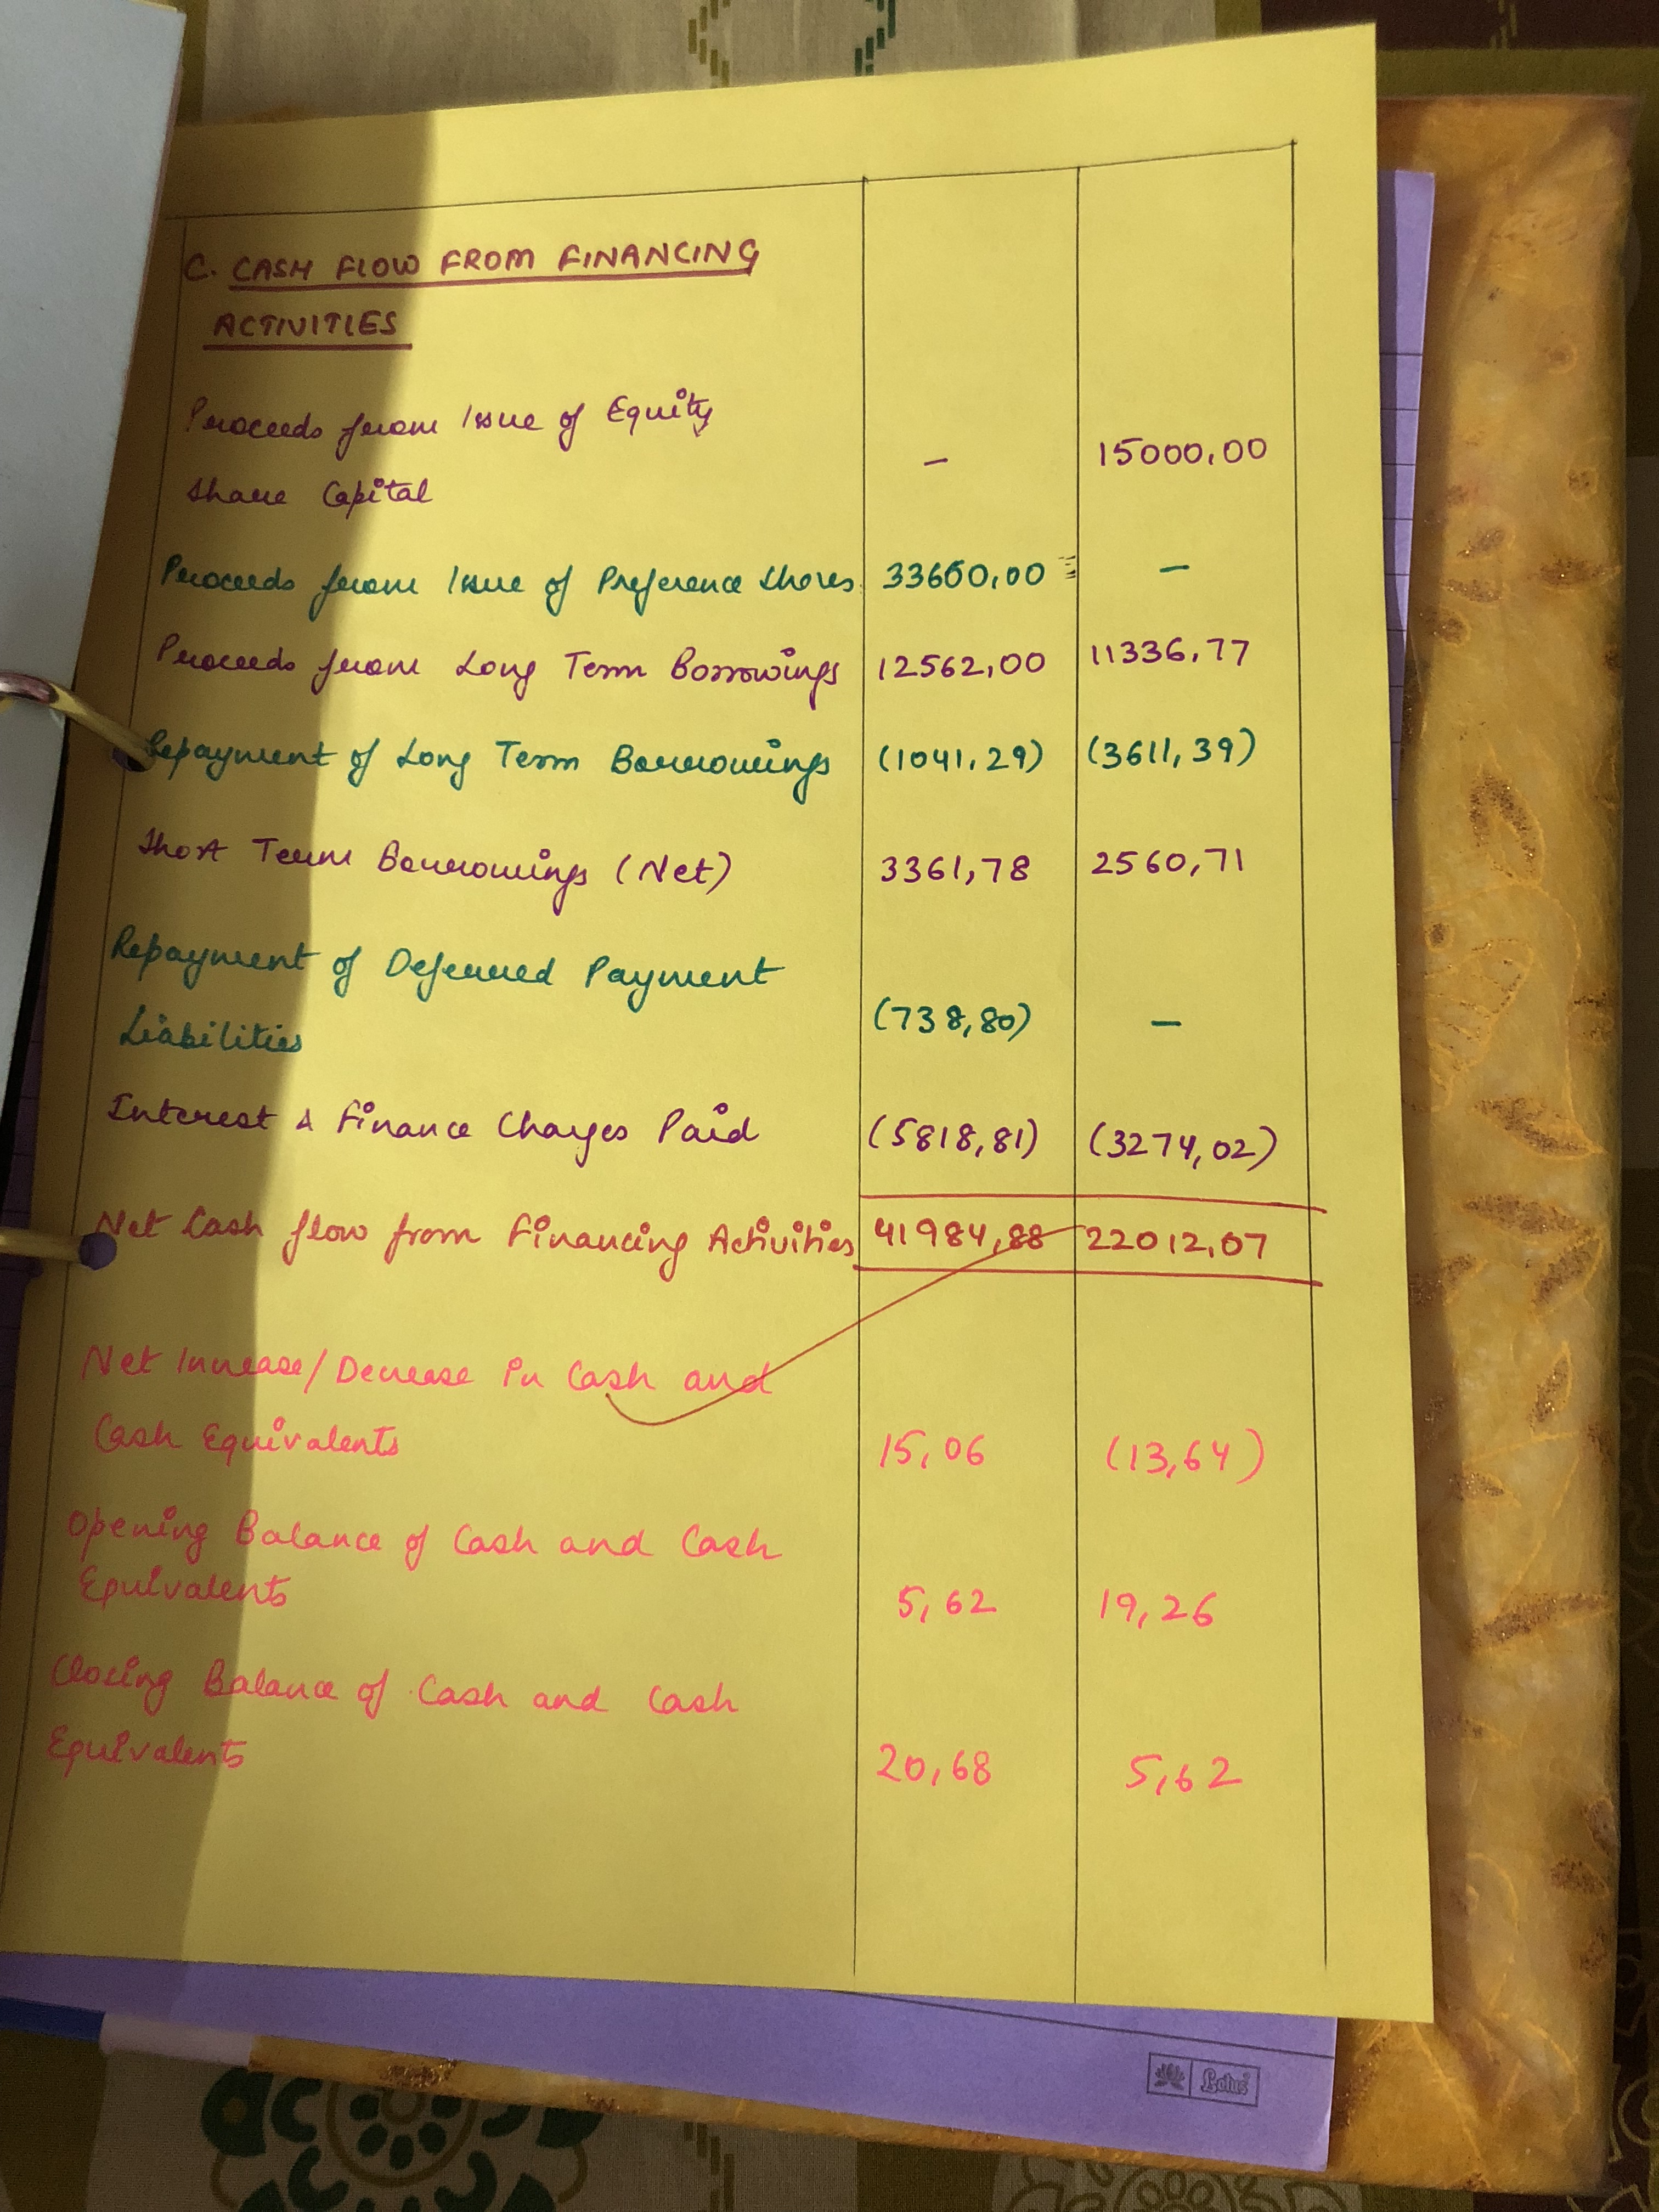 C. CASH FLOW FROM FINANCING
ACTIVITIES
Proceeds from Issue of Equity
Share Capital - 15000,00
Proceeds from Issue of Preference Shares 33660,00 -
Proceeds from Long Term Borrowings 12562,00 11336,77
Repayment of Long Term Borrowings (1041,29) (3611,39)
Short Term Borrowings (Net) 3361,78 2560,71
Repayment of Deferred Payment
Liabilities (738,80) -
Interest & Finance Charges Paid (5818,81) (3274,02)
Net Cash flow from Financing Activities 41984,88 22012,07
Net Increase/Decrease in Cash and
Cash Equivalents 15,06 (13,64)
Opening Balance of Cash and Cash
Equivalents 5,62 19,26
Closing Balance of Cash and Cash
Equivalents 20,68 5,62
Lotus